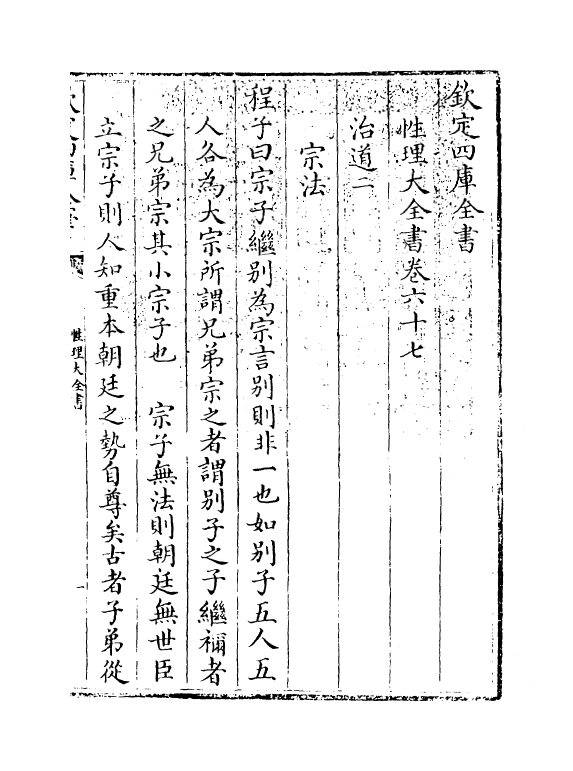 欽定四庫全書
性理大全書卷六十七
治道二
宗法
程子曰宗子繼别為宗言别則非一也如别子五人五
人各為大宗所謂兄弟宗之者謂别子之子繼禰者
之兄弟宗其小宗子也　宗子無法則朝廷無世臣
立宗子則人知重本朝廷之勢自尊矣古者子弟從
性理大全書
一